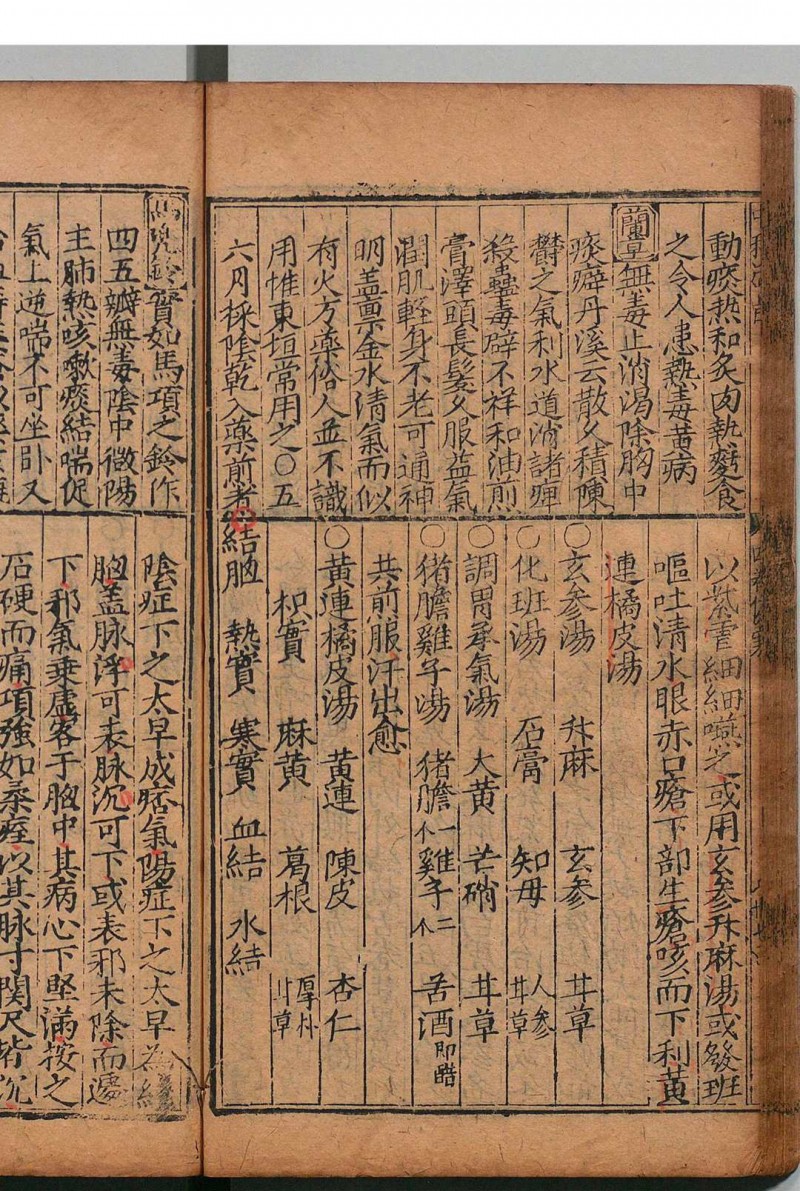 動痰熱和炙肉執𩟾食
之令人患熱毒黃病
蘭草無毒止消渴除胸中
痰癖丹溪云散久積陳
欝之氣利水道消諸癉
殺蠱毒辟不祥和油煎
膏澤頭長髮久服益氣
潤肌輕身不老可通神
明盖禀金水清氣而似
有火方藥俗人並不識
用惟東垣常用之〇五
六月採陰乾入藥煎煮
以紫雪細細嚥之或用玄參升麻湯或發班
嘔吐清水眼赤口瘡下部生瘡咳而下利黃
連橘皮湯
〇玄參湯 升麻 玄參 甘草
〇化班湯 石膏 知母 人參 甘草
〇調胃承氣湯 大黃 芒硝 甘草
〇猪膽雞子湯 猪膽一个 雞子二个 苦酒即醋
共煎服汗出愈
〇黃連橘皮湯 黃連 陳皮 杏仁
枳實 麻黃 葛根 厚朴 甘草
結胸 熱實 寒實 血結 水結
馬兜鈴實如馬項之鈴作
四五瓣無毒陰中微陽
主肺熱咳嗽痰結喘促
氣上逆喘不可坐卧又
陰症下之太早成痞氣陽症下之太早為結
胸盖脉浮可表脉沉可下或表邪未除而遽
下邪氣乗虚客于胸中其病心下堅滿按之
石硬而痛項強如柔痓以其脉寸関尺皆沉